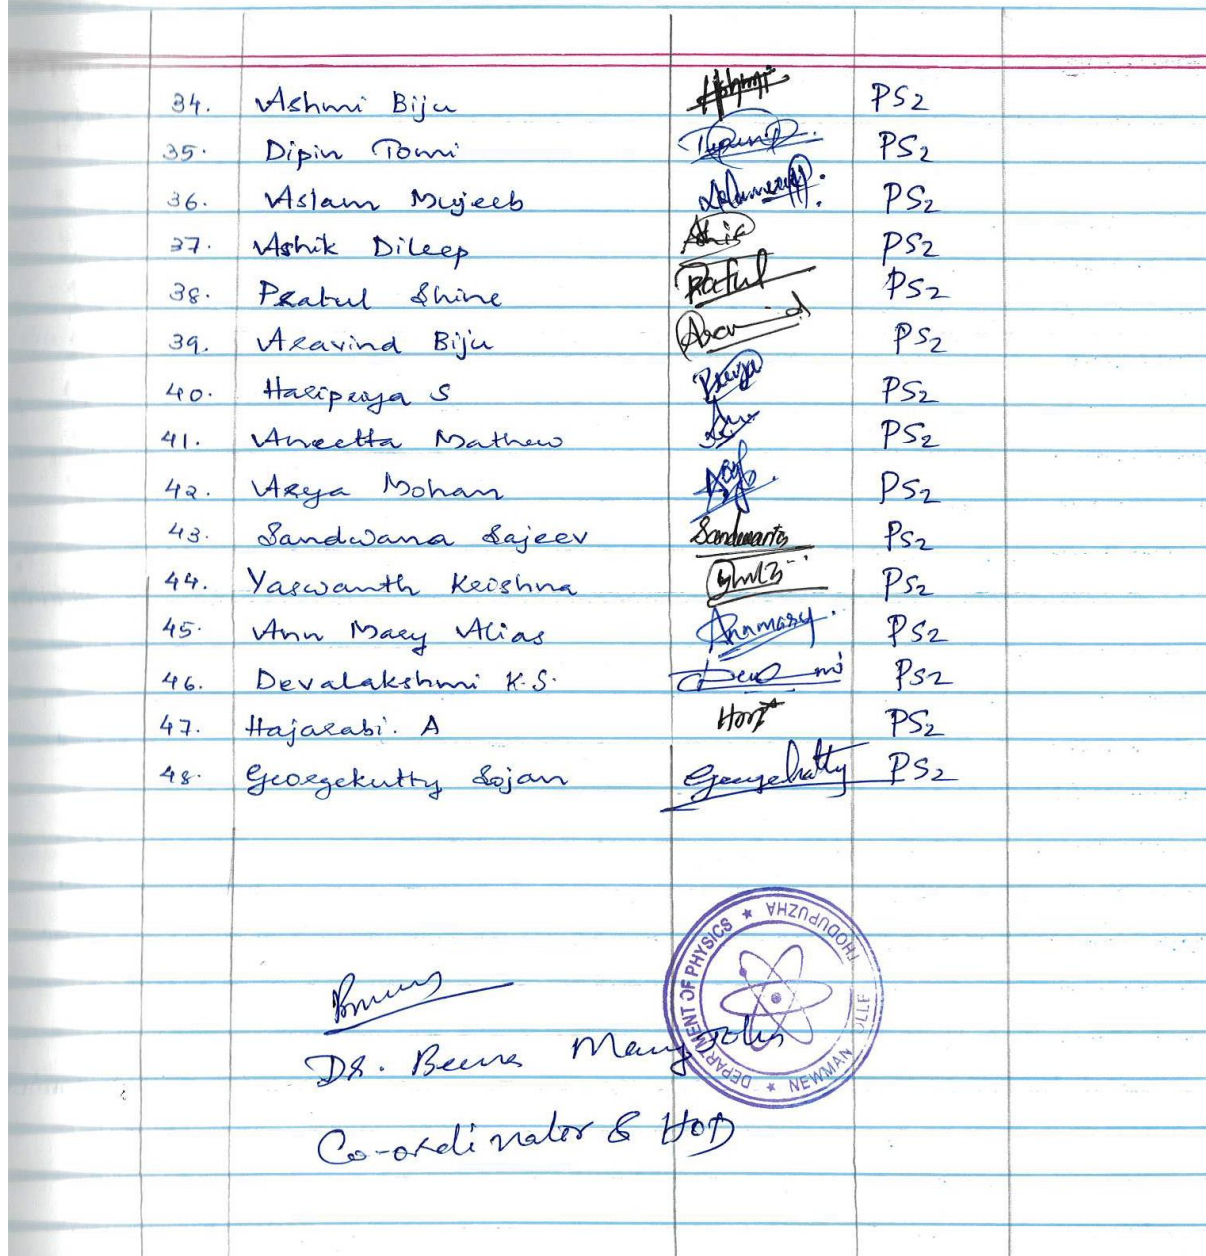 34. Ashmi Biju Ashmi PS2
35. Dipin Tomi PS2
36. Aslam Mujeeb PS2
37. Ashik Dileep PS2
38. Pratul Shine Pratul PS2
39. Aravind Biju PS2
40. Haripriya S Priya PS2
41. Aneetta Mathew PS2
42. Arya Mohan PS2
43. Sandwana Sajeev Sandwana PS2
44. Yaswanth Krishna PS2
45. Ann Mary Alias Annmary. PS2
46. Devalakshmi K.S. PS2
47. Hajarabi. A PS2
48. Georgekutty Sojan Georgekutty PS2
DEPARTMENT OF PHYSICS ★ THODUPUZHA
★ NEWMAN
Dr. Beena Mary John
Co-ordinator & HOD